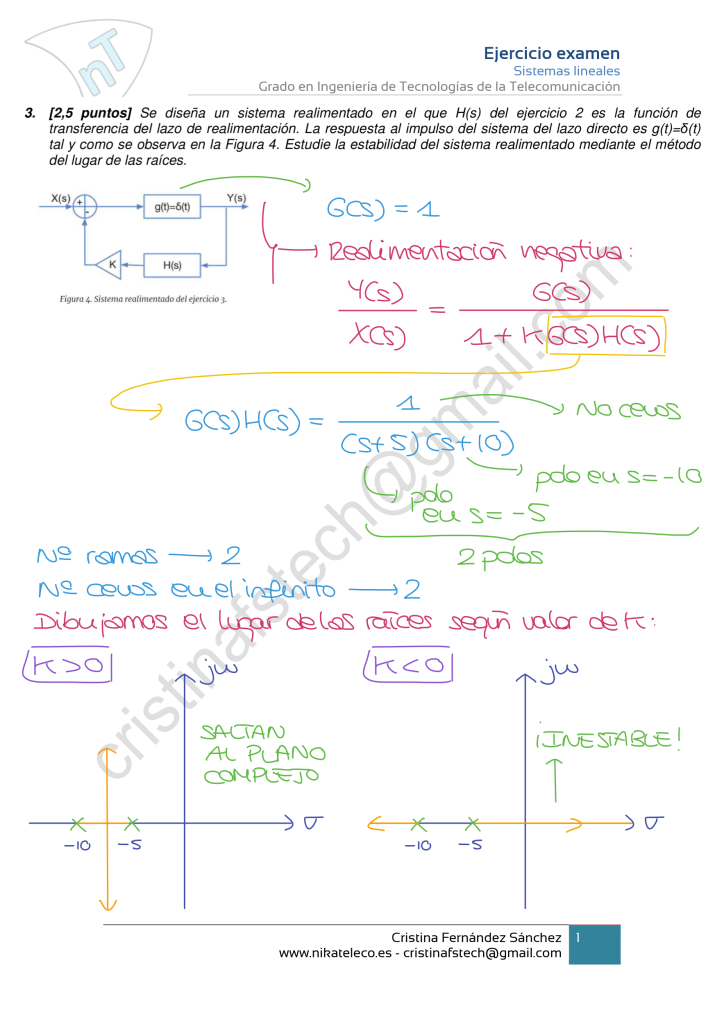 nT
Ejercicio examen
Sistemas lineales
Grado en Ingeniería de Tecnologías de la Telecomunicación
3. [2,5 puntos] Se diseña un sistema realimentado en el que H(s) del ejercicio 2 es la función de
transferencia del lazo de realimentación. La respuesta al impulso del sistema del lazo directo es g(t)=δ(t)
tal y como se observa en la Figura 4. Estudie la estabilidad del sistema realimentado mediante el método
del lugar de las raíces.
X(s) + - g(t)=δ(t) Y(s)
K H(s)
Figura 4. Sistema realimentado del ejercicio 3.
G(s) = 1
Realimentación negativa:
Y(s) / X(s) = G(s) / 1 + K G(s)H(s)
G(s)H(s) = 1 / (s+5)(s+10)
No ceros
polo en s=-10
polo
en s=-5
2 polos
Nº ramas → 2
Nº ceros en el infinito → 2
Dibujamos el lugar de las raíces según valor de K:
K>0
jω
SALTAN
AL PLANO
COMPLEJO
σ
-10 -5
K<0
jω
¡INESTABLE!
σ
-10 -5
cristinafstech@gmail.com
Cristina Fernández Sánchez 1
www.nikateleco.es - cristinafstech@gmail.com